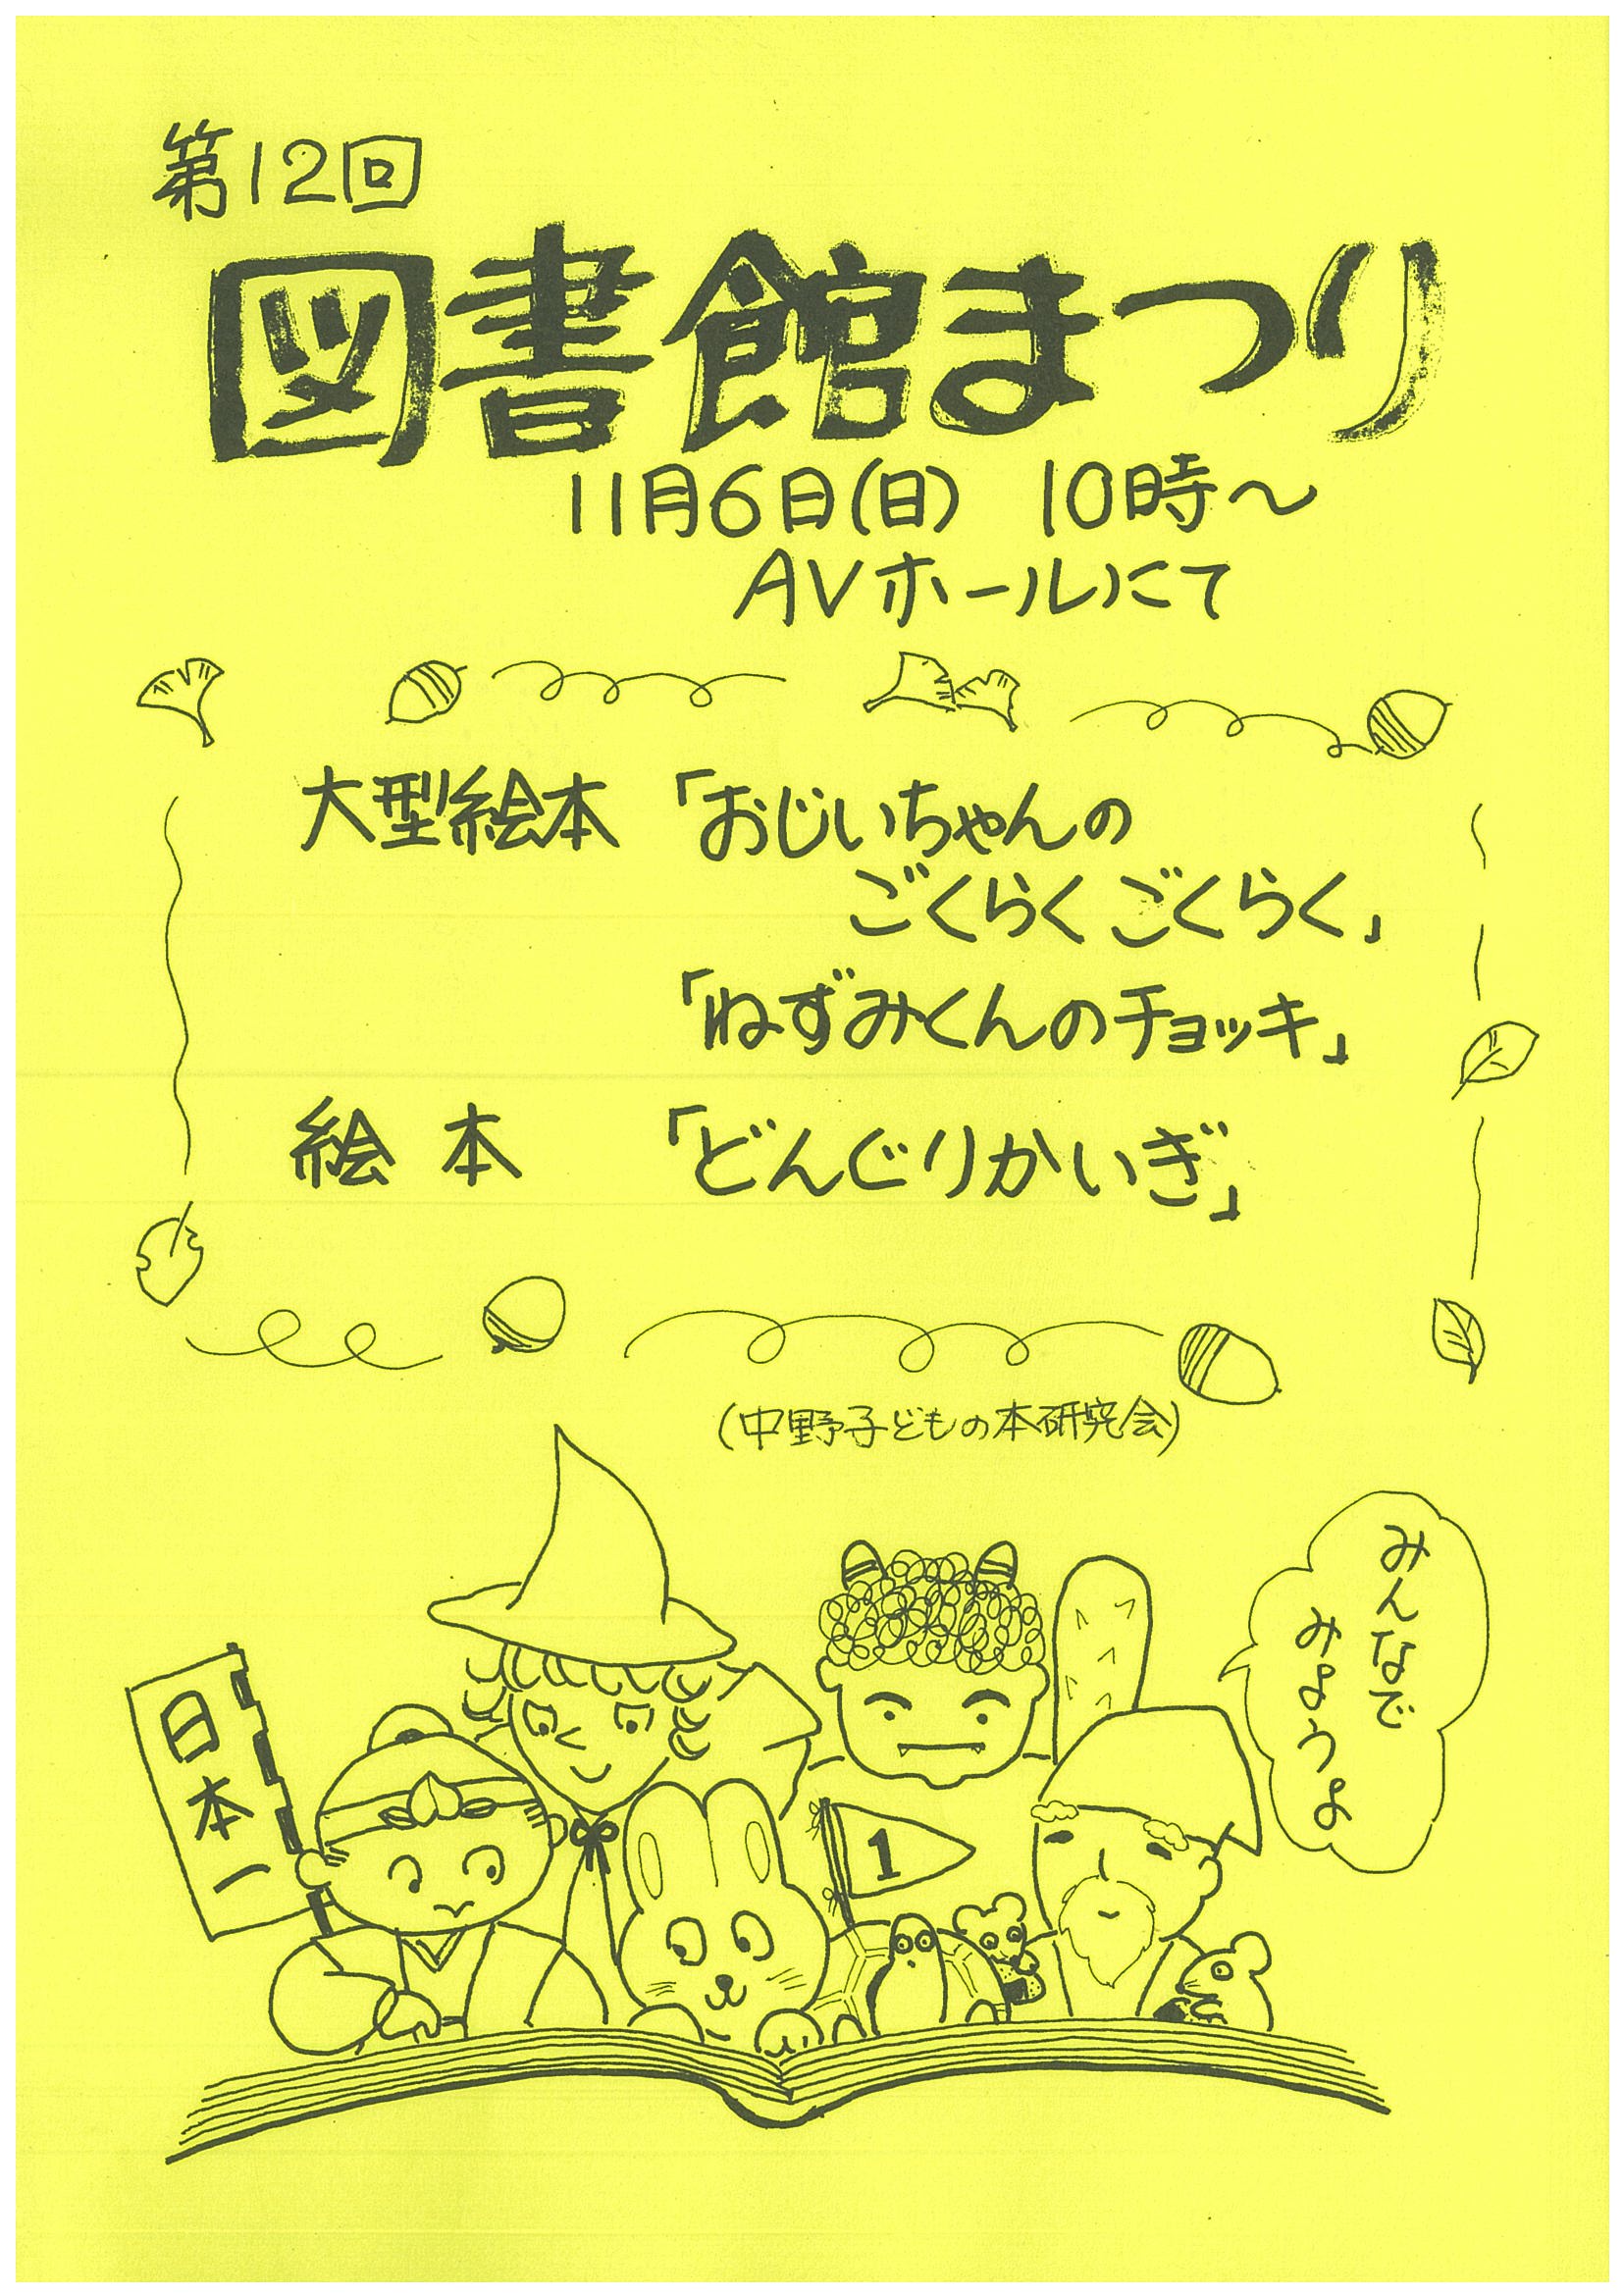 第12回
図書館まつり
11月6日(日) 10時〜
AVホールにて
大型絵本 「おじいちゃんの
ごくらくごくらく」
「ねずみくんのチョッキ」
絵本 「どんぐりかいぎ」
(中野子どもの本研究会)
みんなで
みようよ
日本一
1